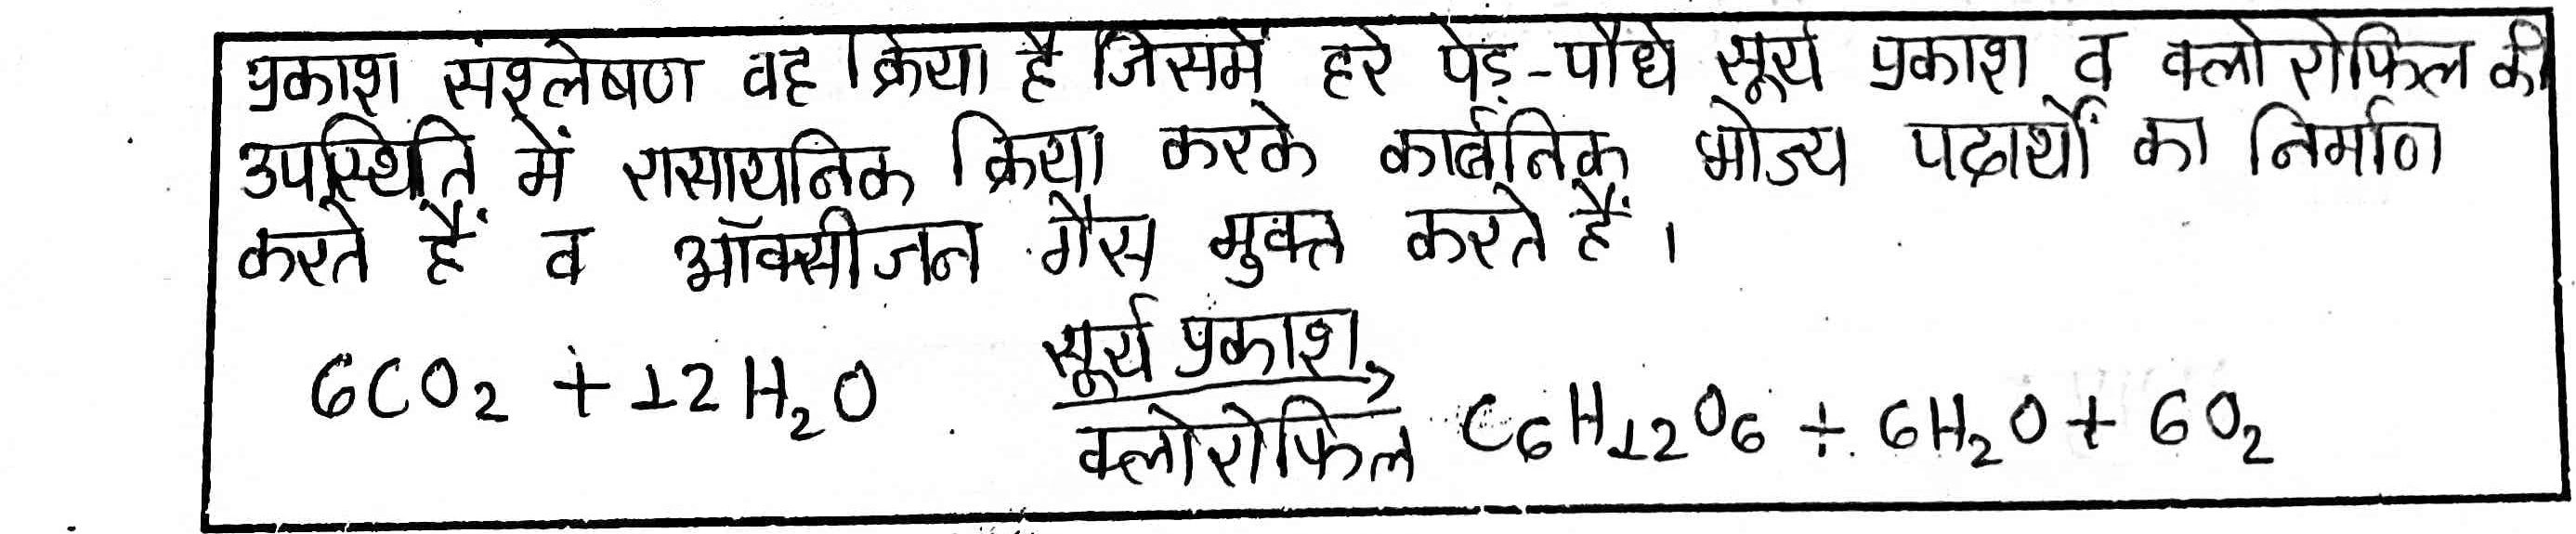 प्रकाश संश्लेषण वह क्रिया है जिसमें हरे पेड़-पौधे सूर्य प्रकाश व क्लोरोफिल की
उपस्थिति में रासायनिक क्रिया करके कार्बनिक भोज्य पदार्थों का निर्माण
करते हैं व ऑक्सीजन गैस मुक्त करते हैं।
सूर्य प्रकाश
6CO₂ + 12H₂O → C₆H₁₂O₆ + 6H₂O + 6O₂
क्लोरोफिल